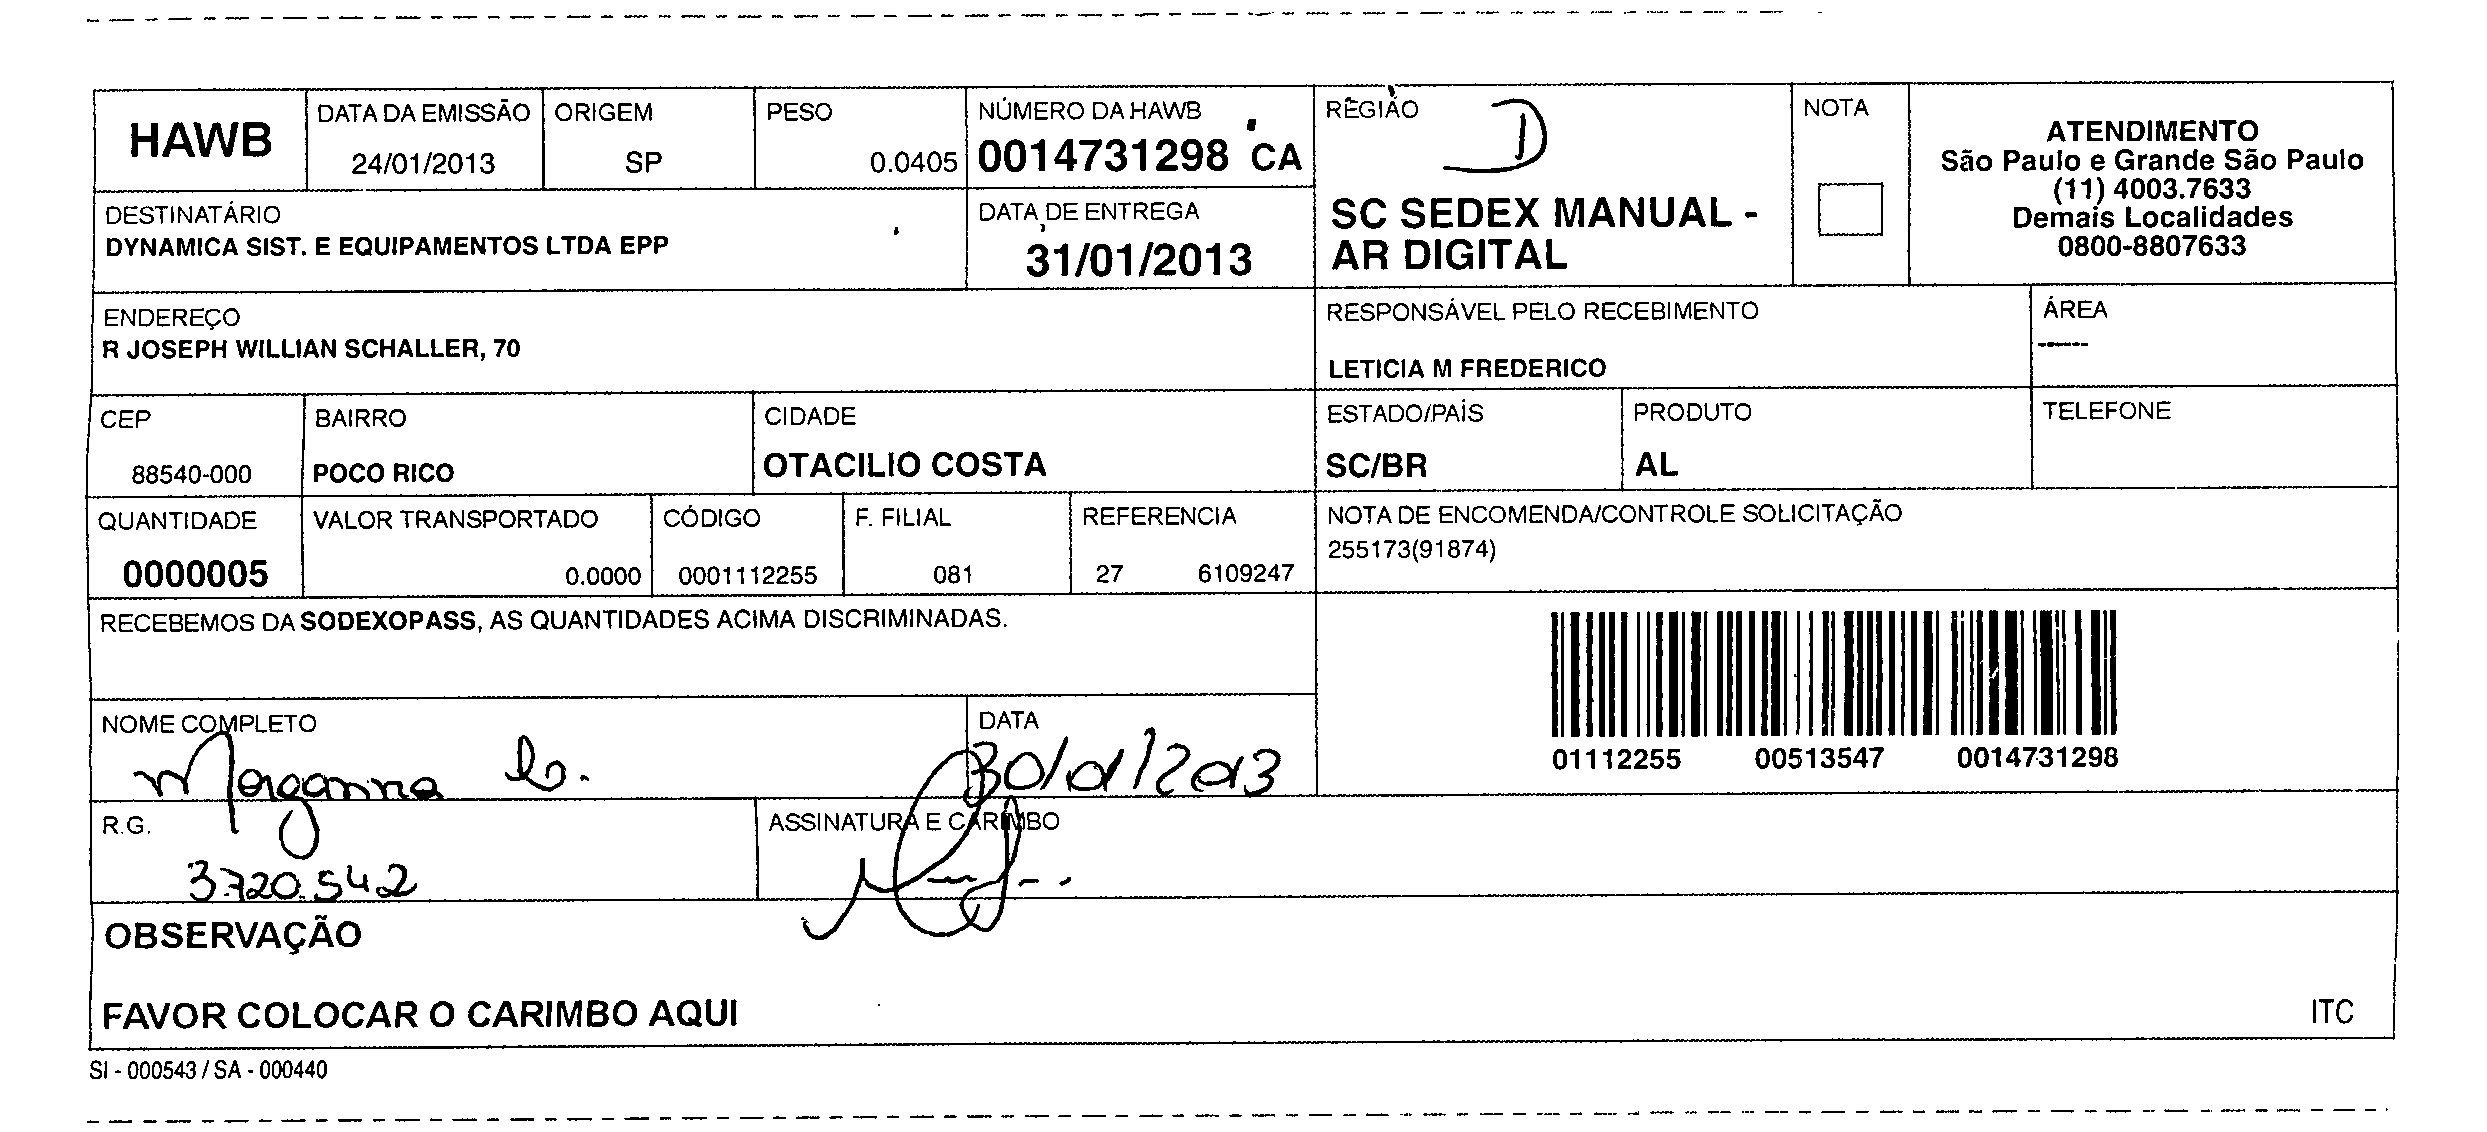 HAWB
DATA DA EMISSÃO
24/01/2013
ORIGEM
SP
PESO
0.0405
NÚMERO DA HAWB
0014731298 CA
REGIÃO
D
SC SEDEX MANUAL -
AR DIGITAL
NOTA
ATENDIMENTO
São Paulo e Grande São Paulo
(11) 4003.7633
Demais Localidades
0800-8807633
DESTINATÁRIO
DYNAMICA SIST. E EQUIPAMENTOS LTDA EPP
DATA DE ENTREGA
31/01/2013
ENDEREÇO
R JOSEPH WILLIAN SCHALLER, 70
RESPONSÁVEL PELO RECEBIMENTO
LETICIA M FREDERICO
ÁREA
-----
CEP
88540-000
BAIRRO
POCO RICO
CIDADE
OTACILIO COSTA
ESTADO/PAÍS
SC/BR
PRODUTO
AL
TELEFONE
QUANTIDADE
0000005
VALOR TRANSPORTADO
0.0000
CÓDIGO
0001112255
F. FILIAL
081
REFERENCIA
27 6109247
NOTA DE ENCOMENDA/CONTROLE SOLICITAÇÃO
255173(91874)
RECEBEMOS DA SODEXOPASS, AS QUANTIDADES ACIMA DISCRIMINADAS.
01112255 00513547 0014731298
NOME COMPLETO
Morganna
DATA
30/01/2013
R.G.
3.720.542
ASSINATURA E CARIMBO
OBSERVAÇÃO
FAVOR COLOCAR O CARIMBO AQUI
ITC
SI - 000543 / SA - 000440